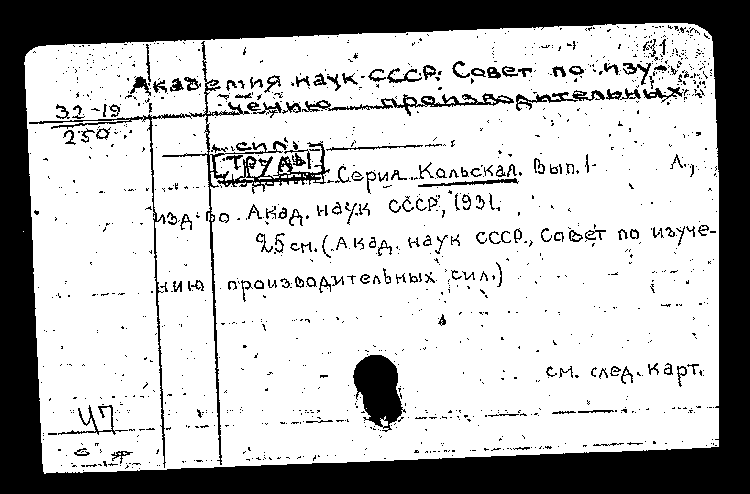 31
Академия наук СССР. Совет по изу-
32-19
чению производительных
250
сил.
ТРУДЫ
Серия Кольская. Вып. 1. Л.,
изд-во Акад. наук СССР, 1931.
25 см. (Акад. наук СССР, Совет по изуче-
нию производительных сил.)
см. след. карт.
47